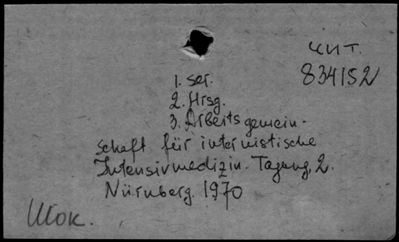 чит.
834152
1. ser.
2. Hrsg.
3. Arbeitsgemein-
schaft für internistische
Intensivmedizin. Tagung, 2.
Nürnberg. 1970
Шок.